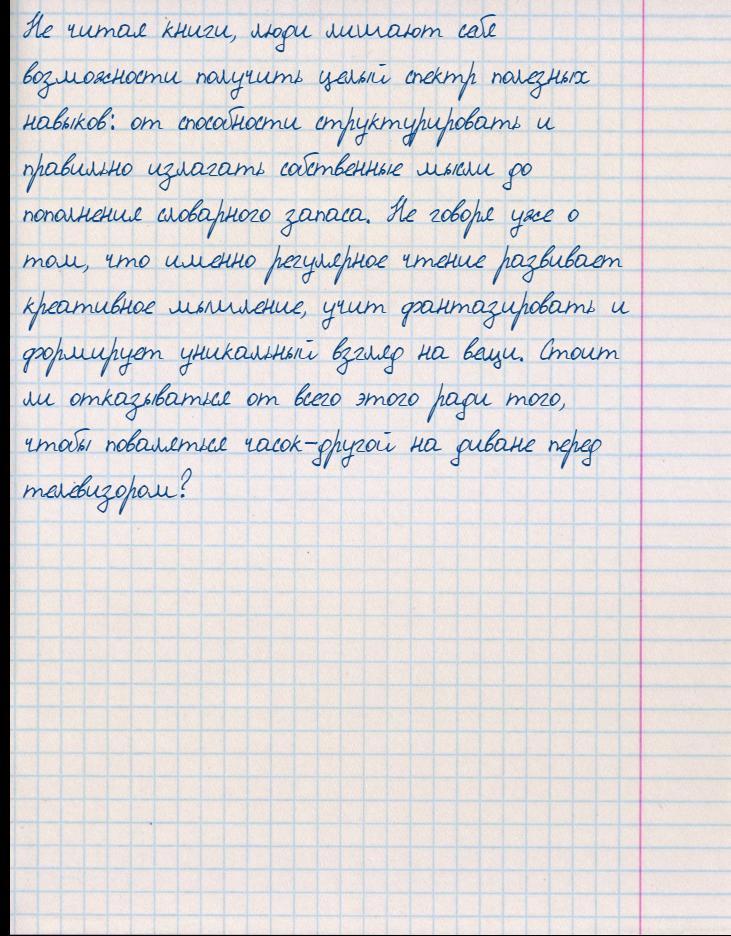 Не читая книги, люди лишают себя
возможности получить целый спектр полезных
навыков: от способности структурировать и
правильно излагать собственные мысли до
пополнения словарного запаса. Не говоря уже о
том, что именно регулярное чтение развивает
креативное мышление, учит фантазировать и
формирует уникальный взгляд на вещи. Стоит
ли отказываться от всего этого ради того,
чтобы поваляться часок-другой на диване перед
телевизором?